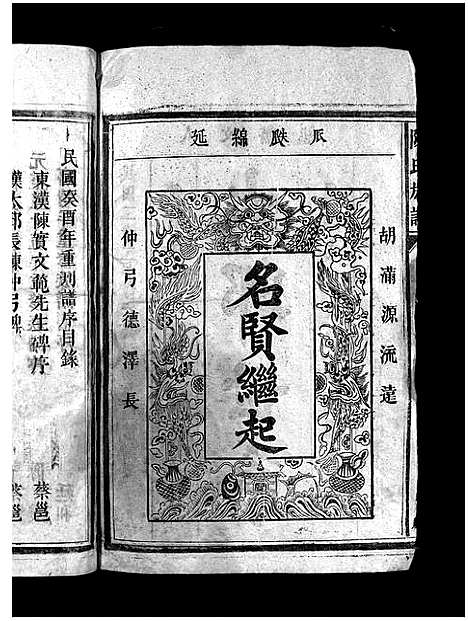 陳氏族譜
瓜瓞綿延
胡滿源流遠
名賢繼起
仲弓德澤長
民國癸酉年重刊譜序目錄
元東漢陳寔文範先生碑序 蔡邕
漢太邱長陳仲弓碑 蔡邕